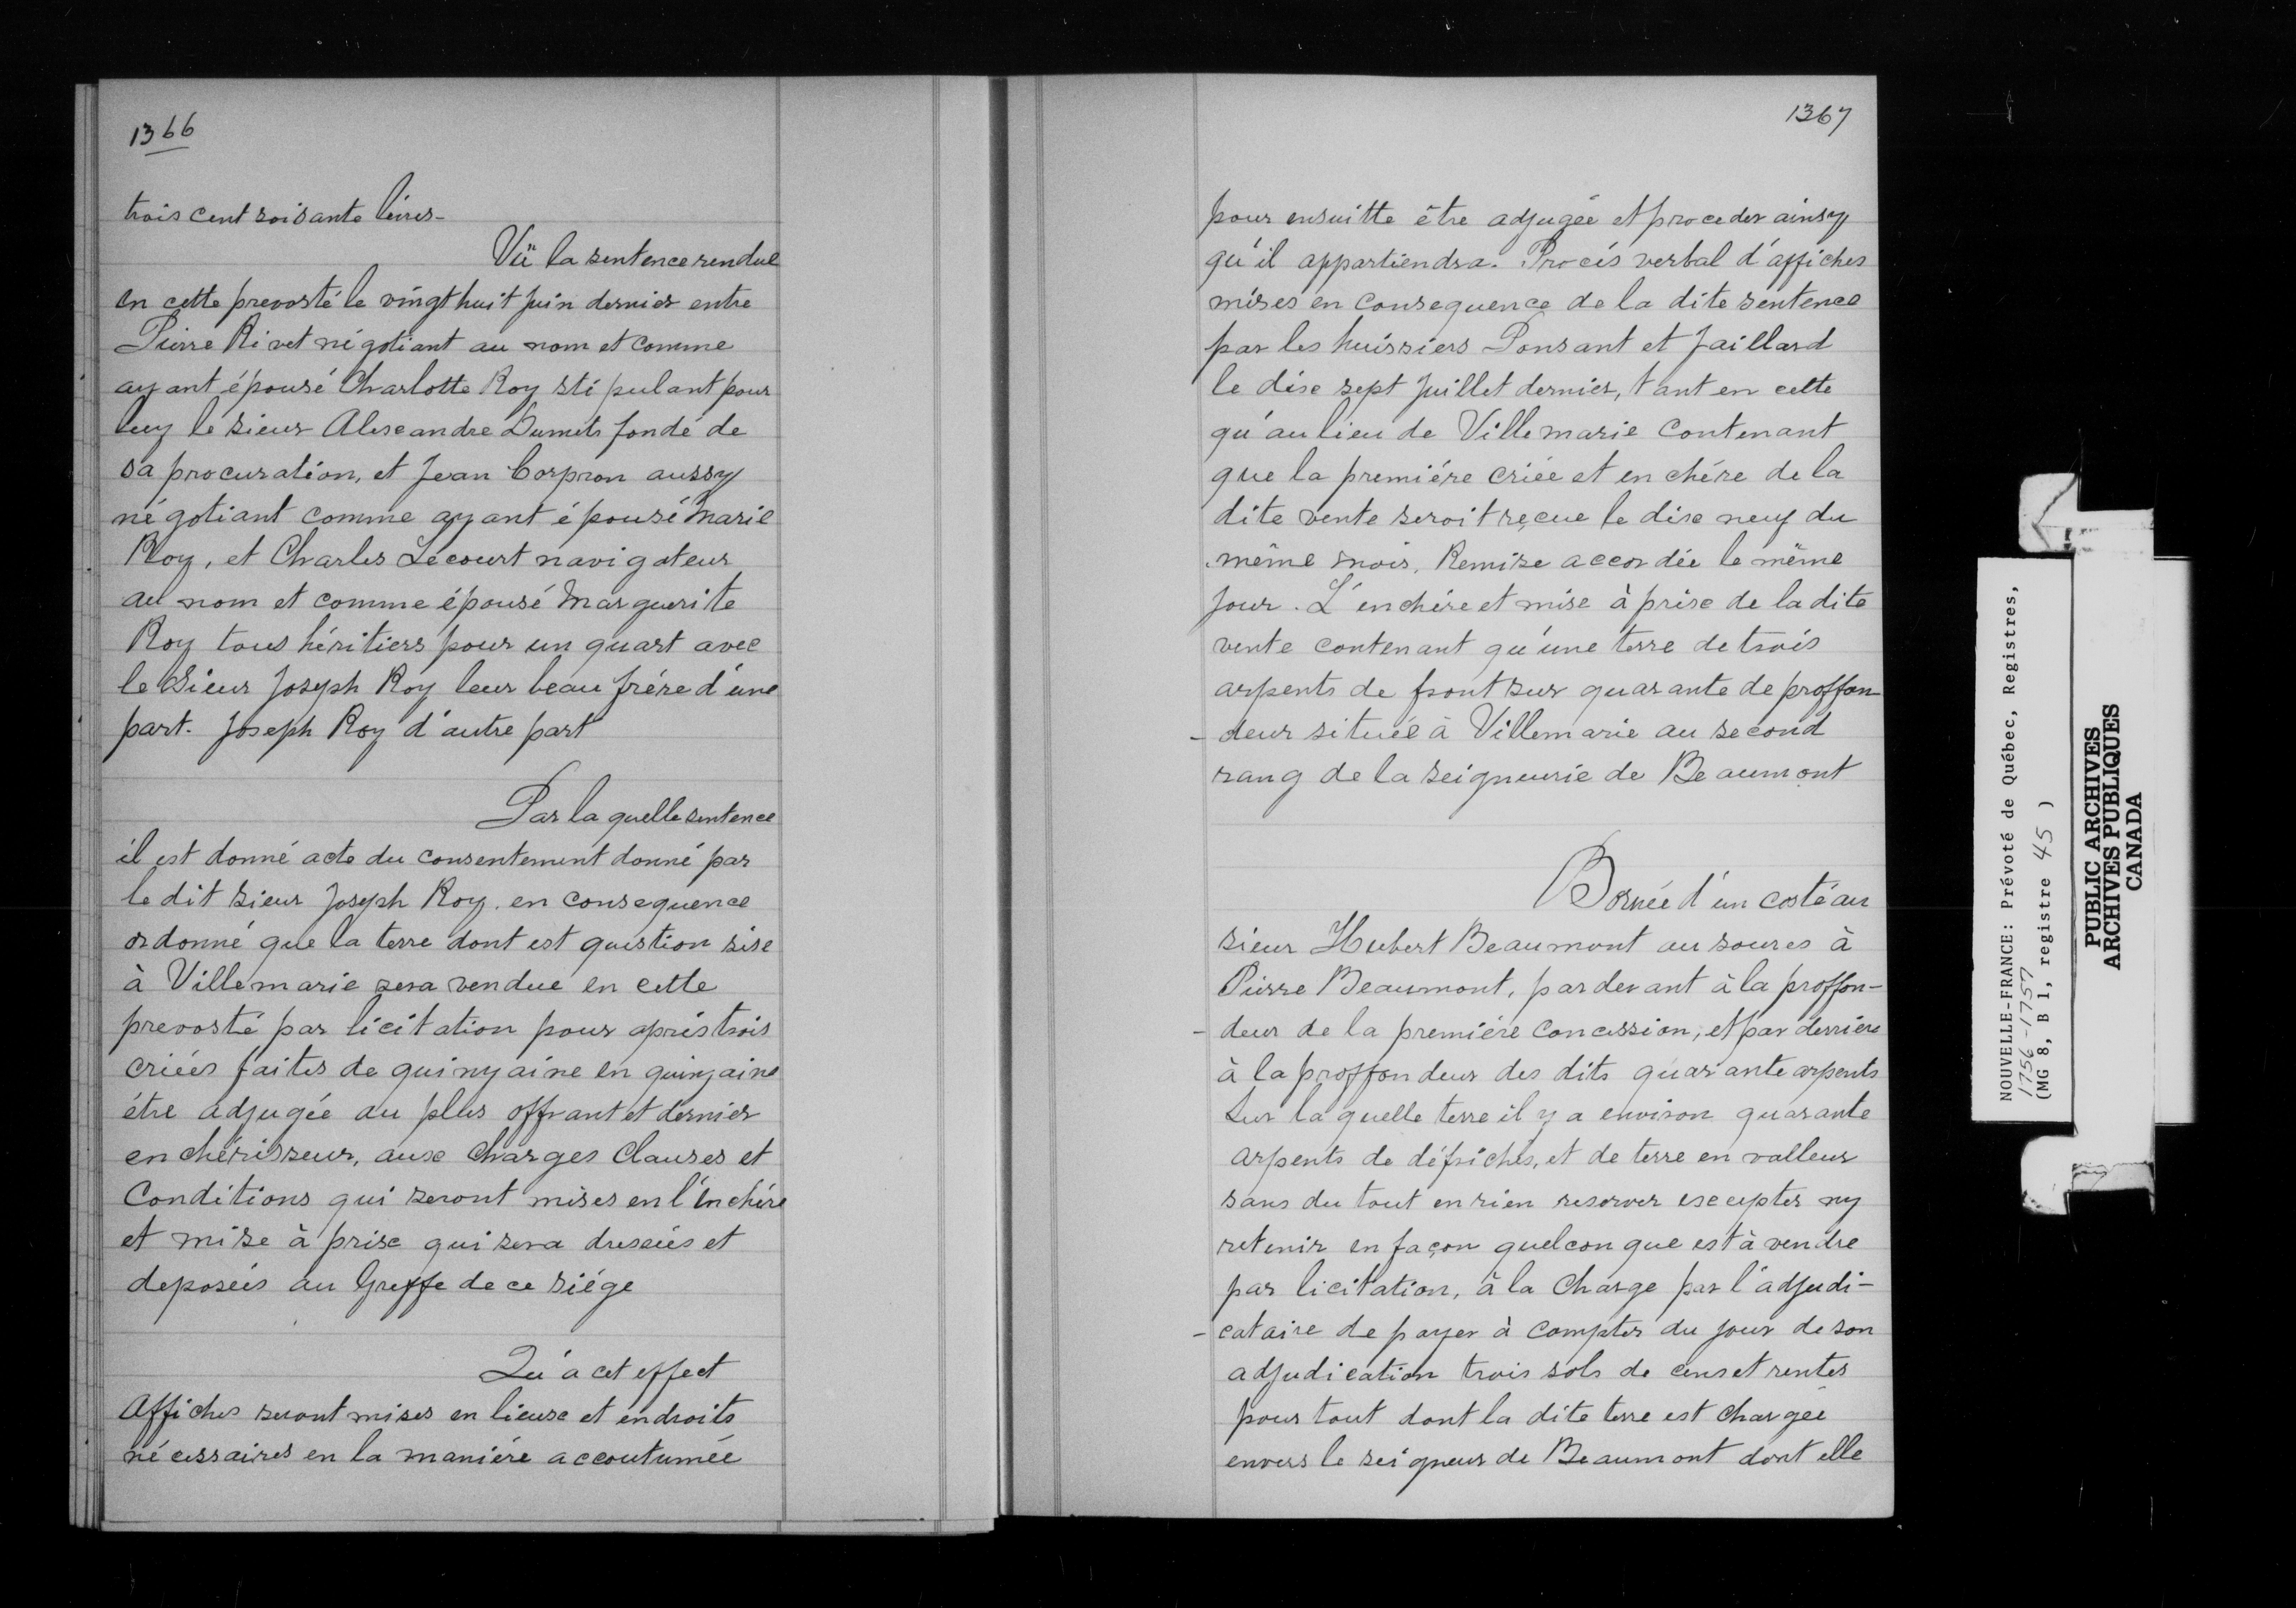 1366
trois cent soixante livres-
Vü la sentence rendue
en cette prevosté le vingt huit juin dernier entre
Pierre Rivet négotiant au nom et comme
ayant épousé Charlotte Roy stipulant pour
luy le sieur Alexandre Dumets fondé de
sa procuration, et Jean Corpron aussy
négotiant comme ayant épousé Marie
Roy, et Charles Lecourt navigateur
au nom et comme épousé Marguerite
Roy tous héritiers pour un quart avec
le Sieur Joseph Roy leur beau frére d'une
part. Joseph Roy d'autre part
Par la quelle sentence
il est donné acte du consentement donné par
le dit sieur Joseph Roy. en consequence
ordonné que la terre dont est question sise
à Villemarie sera vendue en cette
prevosté par licitation pour aprés trois
criées faites de quinzaine en quinzaine
étre adjugée au plus offrant et dernier
enchérisseur, aux charges clauses et
Conditions qui seront mises en l'Enchére
et mise à prix qui sera dressées et
deposées au Greffe de ce siége
Qu'a cet effect
Affiches seront mises en lieux et endroits
nécessaires en la maniére accoutumée
1367
pour ensuitte être adjugée et proceder ainsy
qu'il appartiendra. Procés verbal d'affiches
mises en consequence de la dite sentence
par les huissiers Ponsant et Jaillard
le dix sept Juillet dernier, tant en cette
qu'au lieu de Villemarie contenant
que la premiére criée et enchére de la
dite vente seroit reçue le dix neuf du
même mois. Remise accordée le même
Jour. L'enchére et mise à prix de la dite
vente contenant qu'une terre de trois
arpents de front sur quarante de proffon
- deur située à Villemarie au second
rang de la seigneurie de Beaumont
Bornée d'un costé au
sieur Hubert Beaumont au soures à
Pierre Beaumont, par devant à la proffon-
- deur de la premiére concession, et par derriére
à la proffondeur des dits quarante arpents
Sur la quelle terre il y a environ quarante
arpents de défrichés, et de terre en valleur
sans du tout en rien reserver excepter ny
retenir en façon quelconque est à vendre
par licitation, à la charge par l'adjudi-
- cataire de payer à compter du jour de son
adjudication trois sols de cens et rentes
pour tout dont la dite terre est chargée
envers le seigneur de Beaumont dont elle
NOUVELLE-FRANCE: Prévoté de Québec, Registres,
1756-1757
(MG 8, B 1, registre 45 )
PUBLIC ARCHIVES
ARCHIVES PUBLIQUES
CANADA